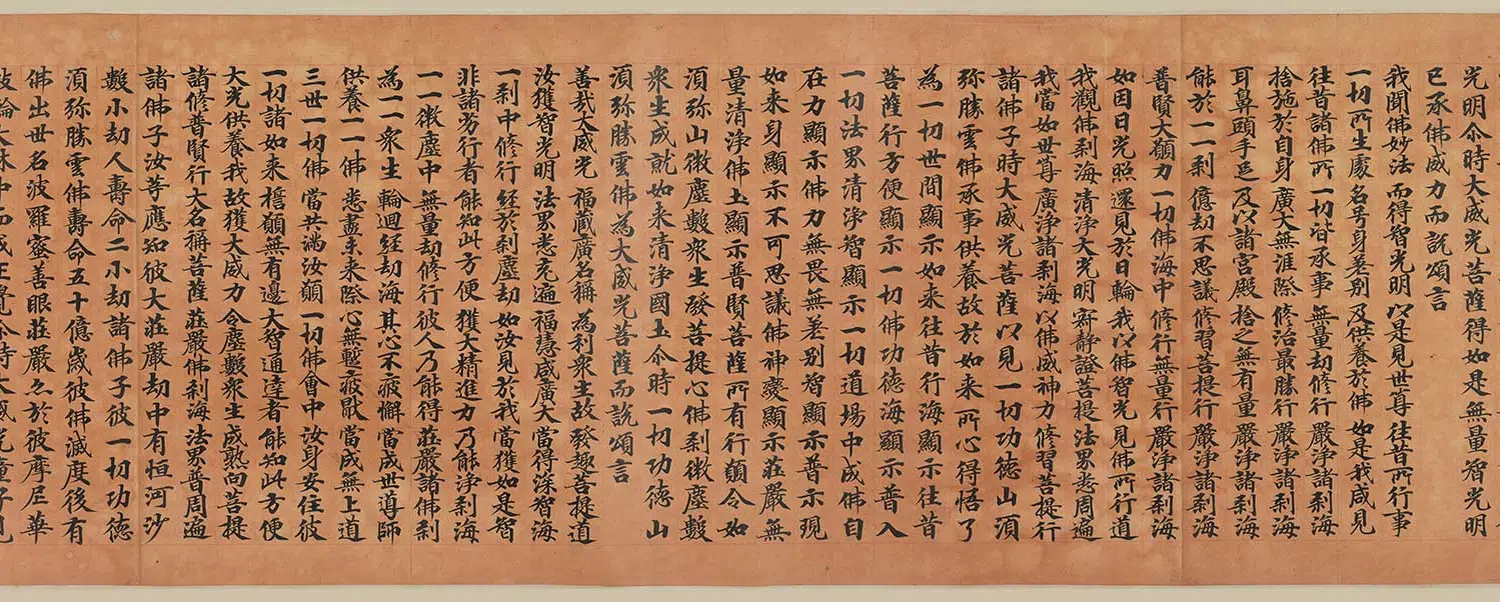 光明尒時大威光菩薩得如是無量智光明
已承佛威力而說頌言
我聞佛妙法 而得智光明 以是見世尊 往昔所行事
一切所生處 名号身差別 及供養於佛 如是我咸見
往昔諸佛所 一切皆承事 無量劫修行 嚴淨諸剎海
捨施於自身 廣大無涯際 修治最勝行 嚴淨諸剎海
耳鼻頭手足 及以諸宮殿 捨之無有量 嚴淨諸剎海
能於一一剎 億劫不思議 修習菩提行 嚴淨諸剎海
普賢大願力 一切佛海中 修行無量行 嚴淨諸剎海
如因日光照 還見於日輪 我以佛智光 見佛所行道
我觀佛剎海 清淨大光明 寂靜證菩提 法界悉周遍
我當如世尊 廣淨諸剎海 以佛威神力 修習菩提行
諸佛子時大威光菩薩以見一切功德山須
弥勝雲佛承事供養故於如来所心得悟了
為一切世間顯示如来往昔行海顯示往昔
菩薩行方便顯示一切佛功德海顯示普入
一切法界清淨智顯示一切道場中成佛自
在力顯示佛力無畏無差別智顯示普示現
如来身顯示不可思議佛神變顯示莊嚴無
量清淨佛土顯示普賢菩薩所有行願令如
湏弥山微塵數衆生發菩提心佛剎微塵數
衆生成就如来清淨國土尒時一切功德山
湏弥勝雲佛為大威光菩薩而說頌言
善哉大威光 福藏廣名稱 為利衆生故 發趣菩提道
汝獲智光明 法界悉充遍 福慧咸廣大 當得深智海
一剎中修行 經於剎塵劫 如汝見於我 當獲如是智
非諸劣行者 能知此方便 獲大精進力 乃能淨剎海
一一微塵中 無量劫修行 彼人乃能得 莊嚴諸佛剎
為一一衆生 輪迴經劫海 其心不疲懈 當成世導師
供養一一佛 悉盡未来際 心無暫疲猒 當成無上道
三世一切佛 當共滿汝願 一切佛會中 汝身安住彼
一切諸如来 誓願無有邊 大智通達者 能知此方便
大光供養我 故獲大威力 令塵數衆生 成熟向菩提
諸修普賢行 大名稱菩薩 莊嚴佛剎海 法界普周遍
諸佛子汝等應知彼大莊嚴劫中有恒河沙
數小劫人壽命二小劫諸佛子彼一切功德
湏弥勝雲佛壽命五十億歲彼佛滅度後有
佛出世名波羅蜜善眼莊嚴亦於彼摩尼華